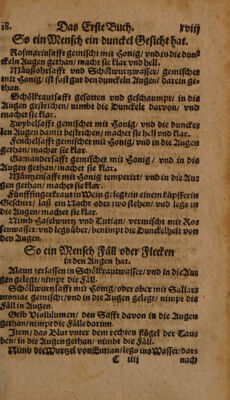 18. Das Erste Buch. xviij
So ein Mensch ein dunckel Gesicht hat.
Rosmarinsafft gemischt mit Honig/ vnd in die dun-
ckeln Augen gethan/ machet sie klar vnd hell.
Mäußöhrlsafft vnd Schölkrautwasser/ gemischet
mit Honig/ ist fast gut den dunckeln Augen/ darein ge-
than.
Schölkrautsafft gesotten vnd geschaumpt/ in die
Augen gestrichen/ nimbt die Dunckele darvon/ vnd
machet sie klar.
Zwybelsafft gemischt mit Honig/ vnd die dunckeln
den Augen damit bestrichen/ machet sie hell vnd klar.
Fenchelsafft gemischt mit Honig/ vnd in die Augen
gethan/ machet sie klar.
Gamandersafft gemischt mit Honig/ vnd in die
Augen gethan/ machet sie klar.
Müntzensafft mit Honig temperirt/ vnd in die Aus
gen gethan/ machet sie klar.
Fünfffingerkraut in Wein gelegt/ in einem küpfferin
Geschirr/ laß ein Nacht oder zwo stehen/ vnd legs in
die Augen/ machet sie klar.
Nimb Haselwurtz vnd Tutian/ vermischt mit Ros
senwasser/ vnd legs uber/ benimpt die Dunckelheit von
den Augen.
So ein Mensch Fäll oder Flecken
in den Augen hat.
Alaun zerlassen in Schölkrautwasser/ vnd in die Aus
gen gelegt/ nimpt die Fäll.
Schölwurtzsafft mit Honig/ oder aber mit Sallars
moniac gemischt/ vnd in die Augen gelegt/ nimpt die
Fäll in Augen.
Gelb Violblumen/ den Safft davon in die Augen
gethan/ nimpt die Fälle darum.
Item/ das Blut vnter dem rechten flügel der Tau-
ben/ in die Augen gethan/ nimbt die Fäll.
Nimb die Wurtzel von Entian/ legs ins Wasser/ dars
C iiij nach